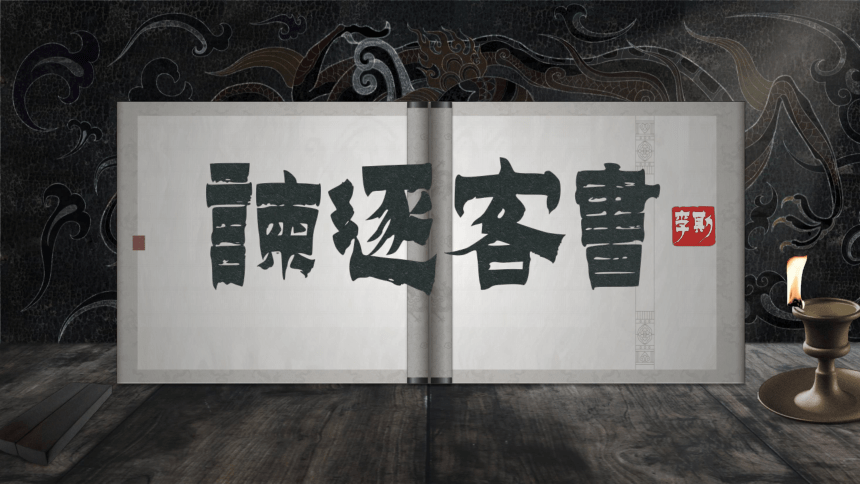 諫逐客書
李斯